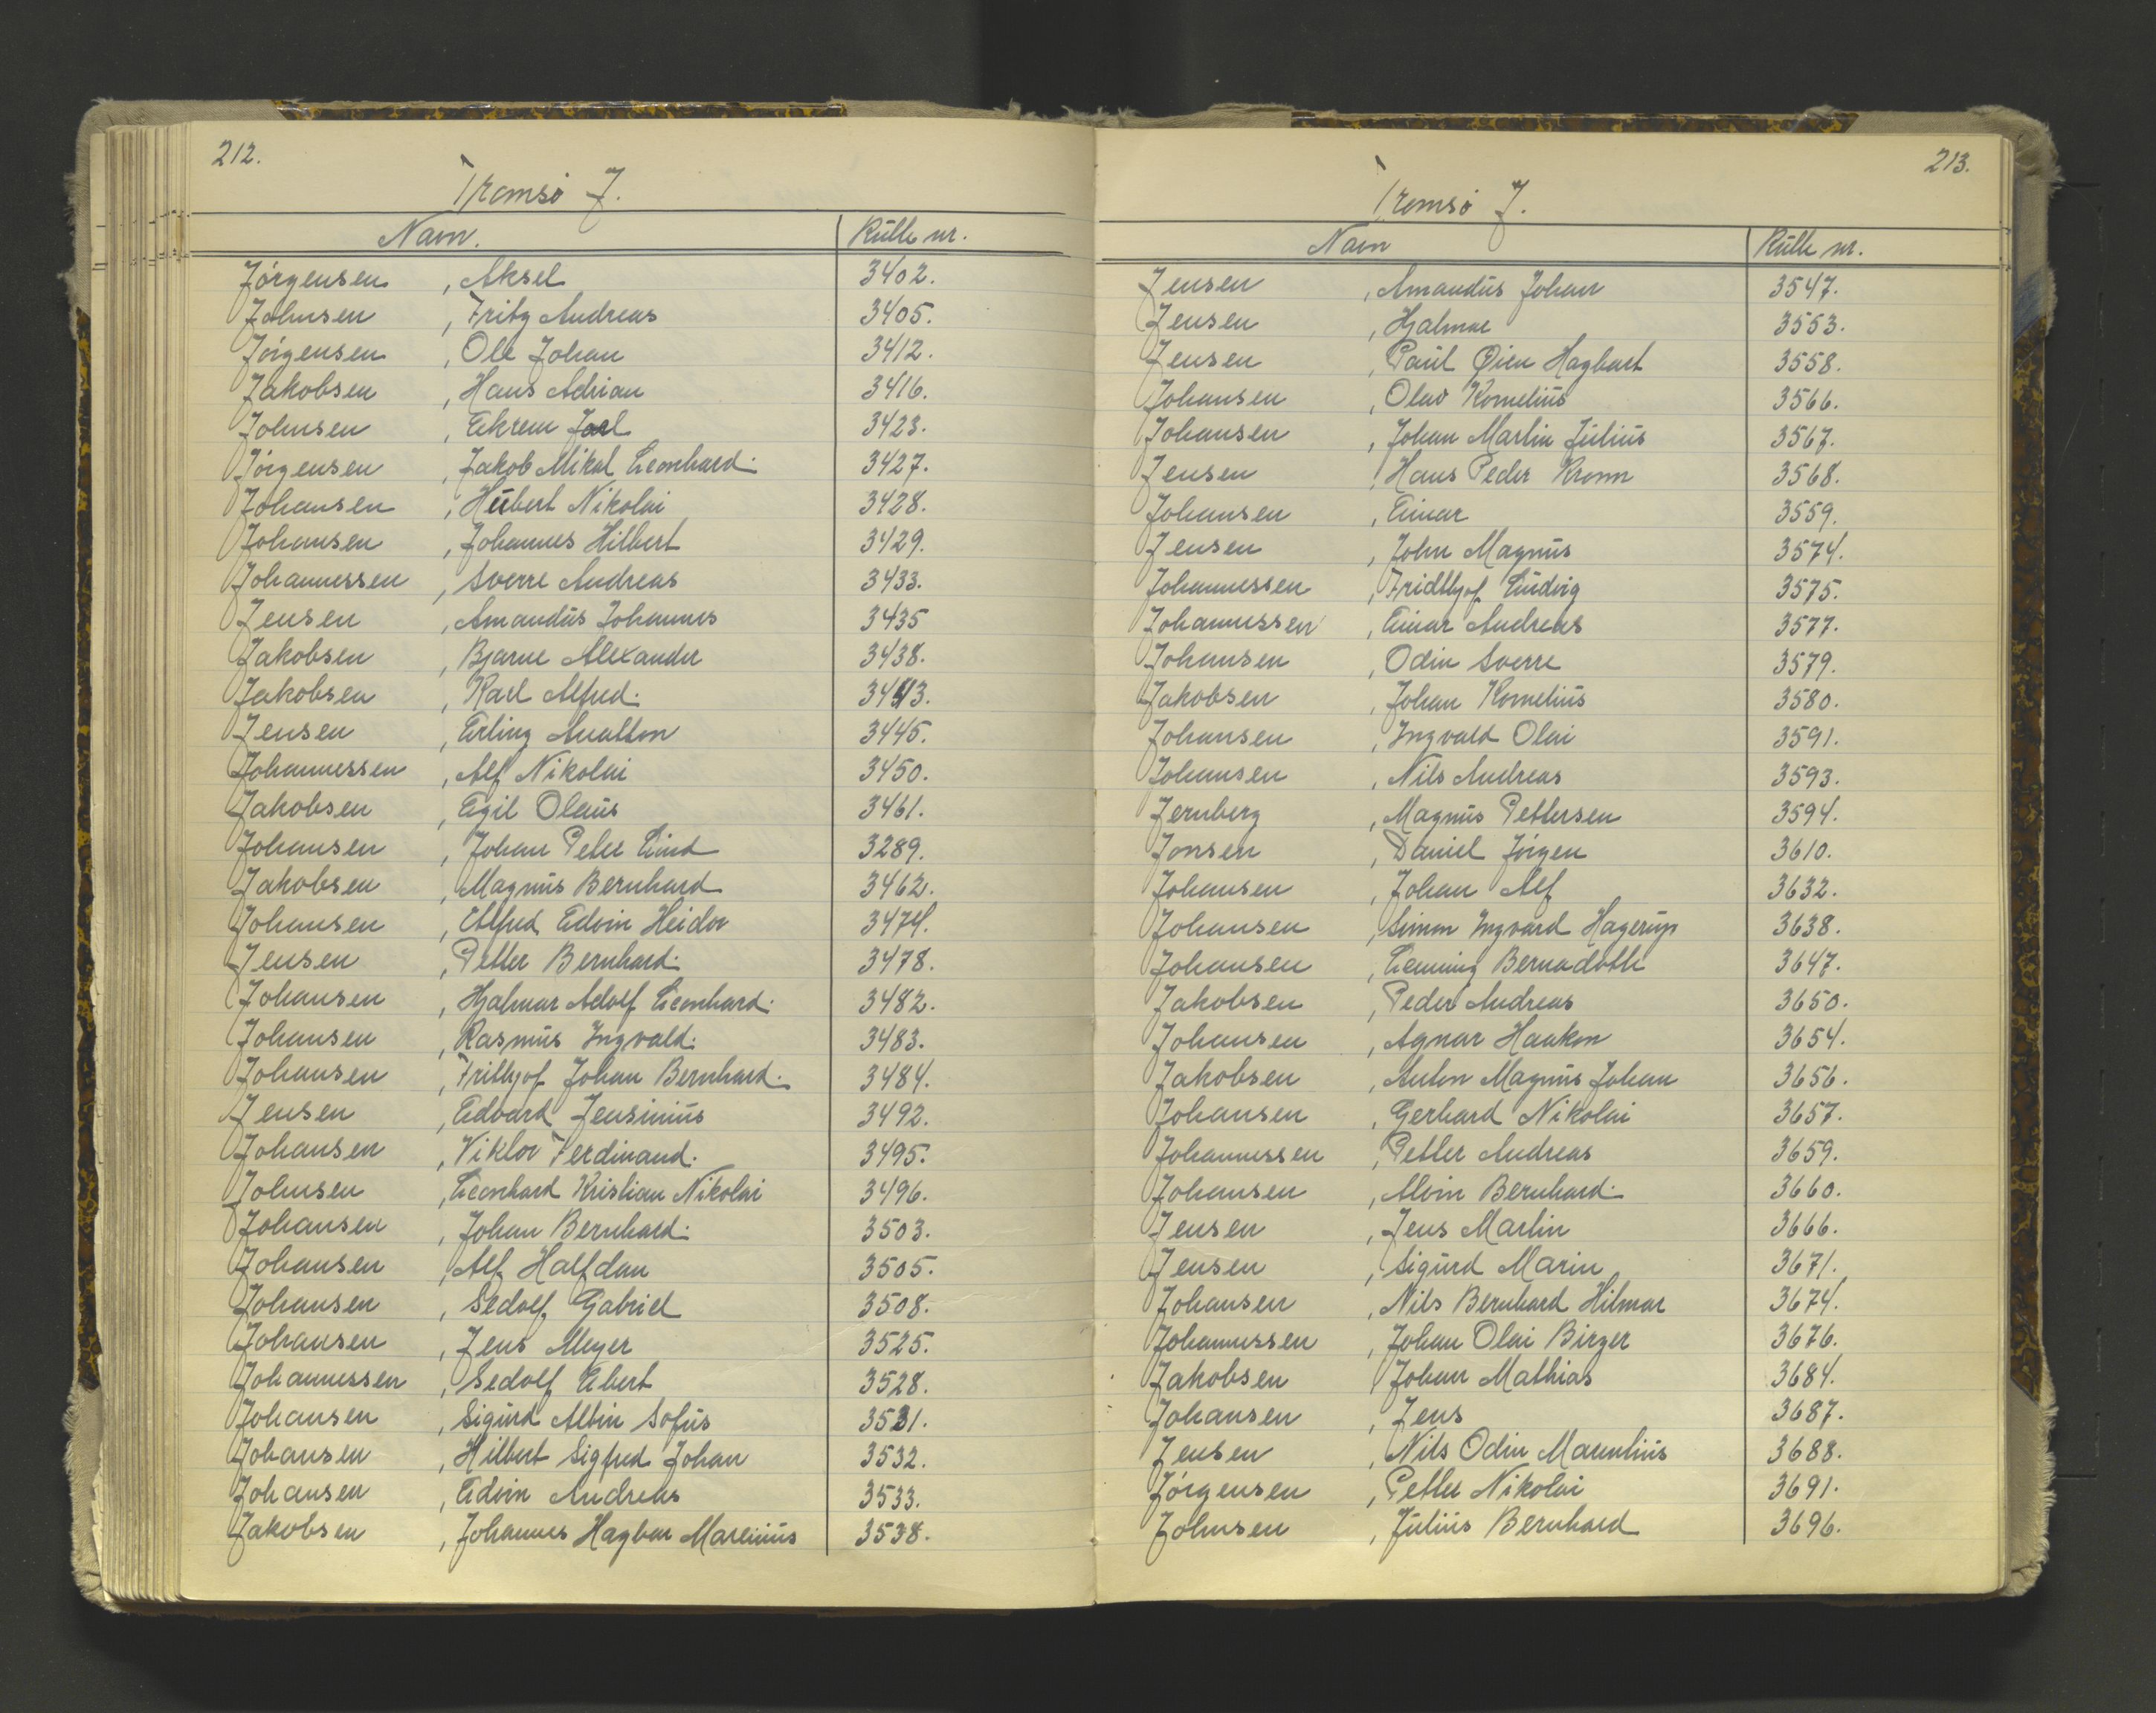 212.
Tromsø J.
Navn. Rulle nr.
Jørgensen, Aksel 3402.
Johnsen, Fritz Andreas 3405.
Jørgensen, Ole Johan 3412.
Jakobsen, Hans Adrian 3416.
Johnsen, Ekrem Joel 3423.
Jørgensen, Jakob Mikal Leonhard. 3427.
Johansen, Hubert Nikolai 3428.
Johansen, Johannes Hilbert 3429.
Johannessen, Sverre Andreas 3433.
Jensen, Amandus Johannes 3435
Jakobsen, Bjarne Alexander 3438.
Jakobsen, Karl Alfred. 3443.
Jensen, Erling Anatton 3445.
Johannessen, Alf Nikolai 3450.
Jakobsen, Egil Olaus 3461.
Johansen, Johan Peter Lind 3289.
Jakobsen, Magnus Bernhard 3462.
Johansen, Alfred Edvin Heidor 3474.
Jensen, Petter Bernhard. 3478.
Johansen, Hjalmar Adolf Leonhard. 3482.
Johansen, Rasmus Ingvald. 3483.
Johansen, Frithjof Johan Bernhard. 3484.
Jensen, Edvard Jensinius 3492.
Johansen, Viktor Ferdinand. 3495.
Johnsen, Leonhard Kristian Nikolai 3496.
Johansen, Johan Bernhard. 3503.
Johansen, Alf Halfdan 3505.
Johansen, Sedolf Gabriel 3508.
Johansen, Jens Meyer 3525.
Johannessen, Sedolf Ebert 3528.
Johansen, Sigurd Albin Sofus 3531.
Johansen, Hilbert Sigfred Johan 3532.
Johansen, Edvin Andreas 3533.
Jakobsen, Johannes Hagbar Marenius 3538.
213.
Tromsø J.
Navn Rulle nr.
Jensen, Amandus Johan 3547.
Jensen, Hjalmar 3553.
Jensen, Paul Øien Hagbart 3558.
Johansen, Olav Kornelius 3566.
Johansen, Johan Martin Julius 3567.
Jensen, Hans Peder Kronn 3568.
Johansen, Einar 3559.
Jensen, John Magnus 3574.
Johannessen, Fridthjof Ludvig 3575.
Johannessen, Einar Andreas 3577.
Johansen, Odin Sverre 3579.
Jakobsen, Johan Kornelius 3580.
Johansen, Ingvald Olai 3591.
Johansen, Nils Andreas 3593.
Jernberg, Magnus Pettersen 3594.
Jonsen, Daniel Jørgen 3610.
Johansen, Johan Alf 3632.
Johansen, Simon Ingvard Hagerup 3638.
Johansen, Henning Bernadotte 3647.
Jakobsen, Peder Andreas 3650.
Johansen, Agnar Haakon 3654.
Jakobsen, Anton Magnus Johan 3656.
Johansen, Gerhard Nikolai 3657.
Johannessen, Petter Andreas 3659.
Johansen, Alvin Bernhard. 3660.
Jensen, Jens Martin 3666.
Jensen, Sigurd Marin 3671.
Johansen, Nils Bernhard Hilmar 3674.
Johannessen, Johan Olai Birger 3676.
Jakobsen, Johan Mathias 3684.
Johansen, Jens 3687.
Jensen, Nils Odin 3688.
Jørgensen, Petter Nikolai 3691.
Johnsen, Julius Bernhard 3696.